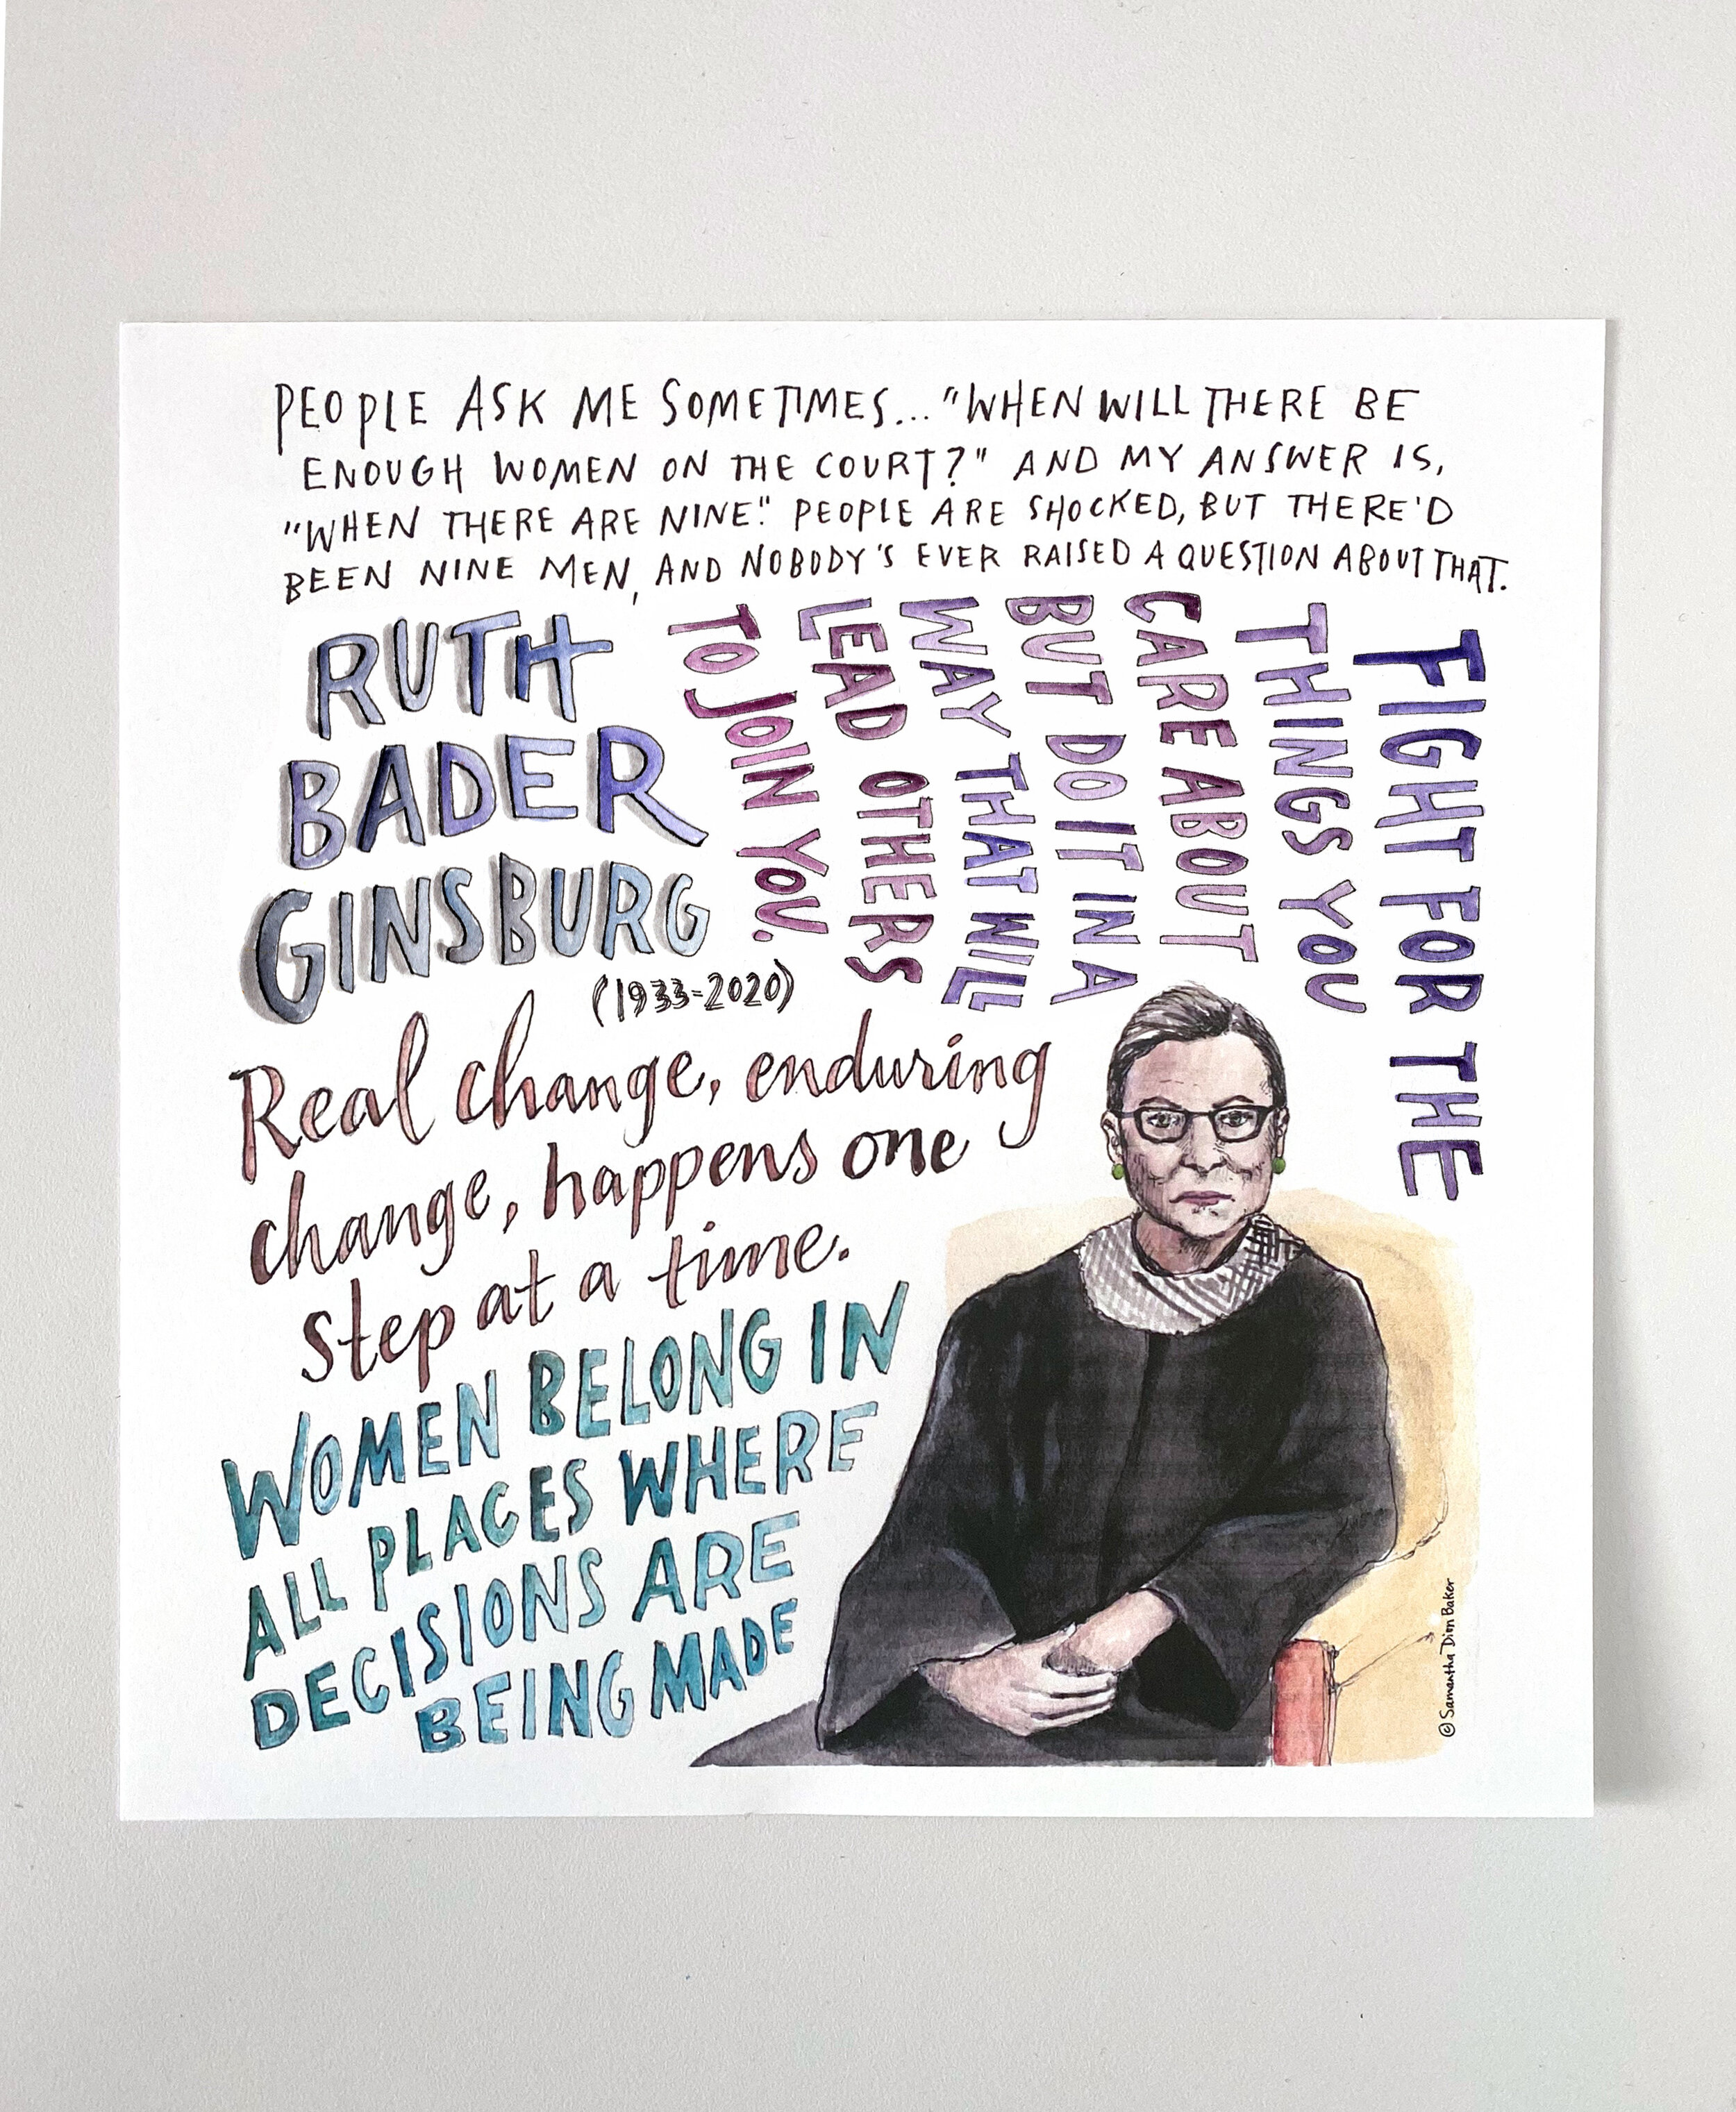 PEOPLE ASK ME SOMETIMES... "WHEN WILL THERE BE
ENOUGH WOMEN ON THE COURT?" AND MY ANSWER IS,
"WHEN THERE ARE NINE." PEOPLE ARE SHOCKED, BUT THERE'D
BEEN NINE MEN, AND NOBODY'S EVER RAISED A QUESTION ABOUT THAT.
RUTH
BADER
GINSBURG
(1933-2020)
FIGHT FOR THE
THINGS YOU
CARE ABOUT
BUT DO IT IN A
WAY THAT WILL
LEAD OTHERS
TO JOIN YOU.
Real change, enduring
change, happens one
step at a time.
WOMEN BELONG IN
ALL PLACES WHERE
DECISIONS ARE
BEING MADE
© Samantha Dion Baker